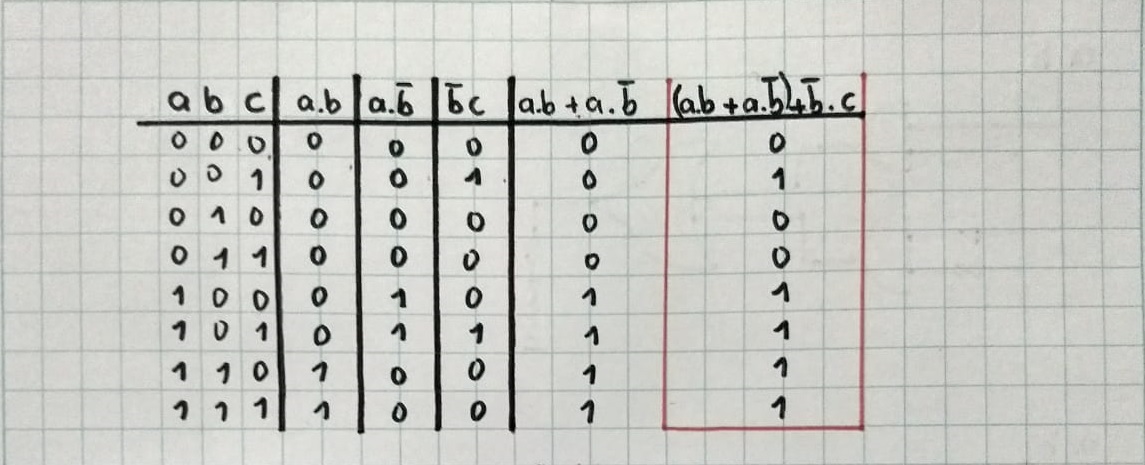 a b c a.b a.b̅ b̅c a.b + a.b̅ (a.b + a.b̅)+b̅.c
0 0 0 0 0 0 0 0
0 0 1 0 0 1 0 1
0 1 0 0 0 0 0 0
0 1 1 0 0 0 0 0
1 0 0 0 1 0 1 1
1 0 1 0 1 1 1 1
1 1 0 1 0 0 1 1
1 1 1 1 0 0 1 1